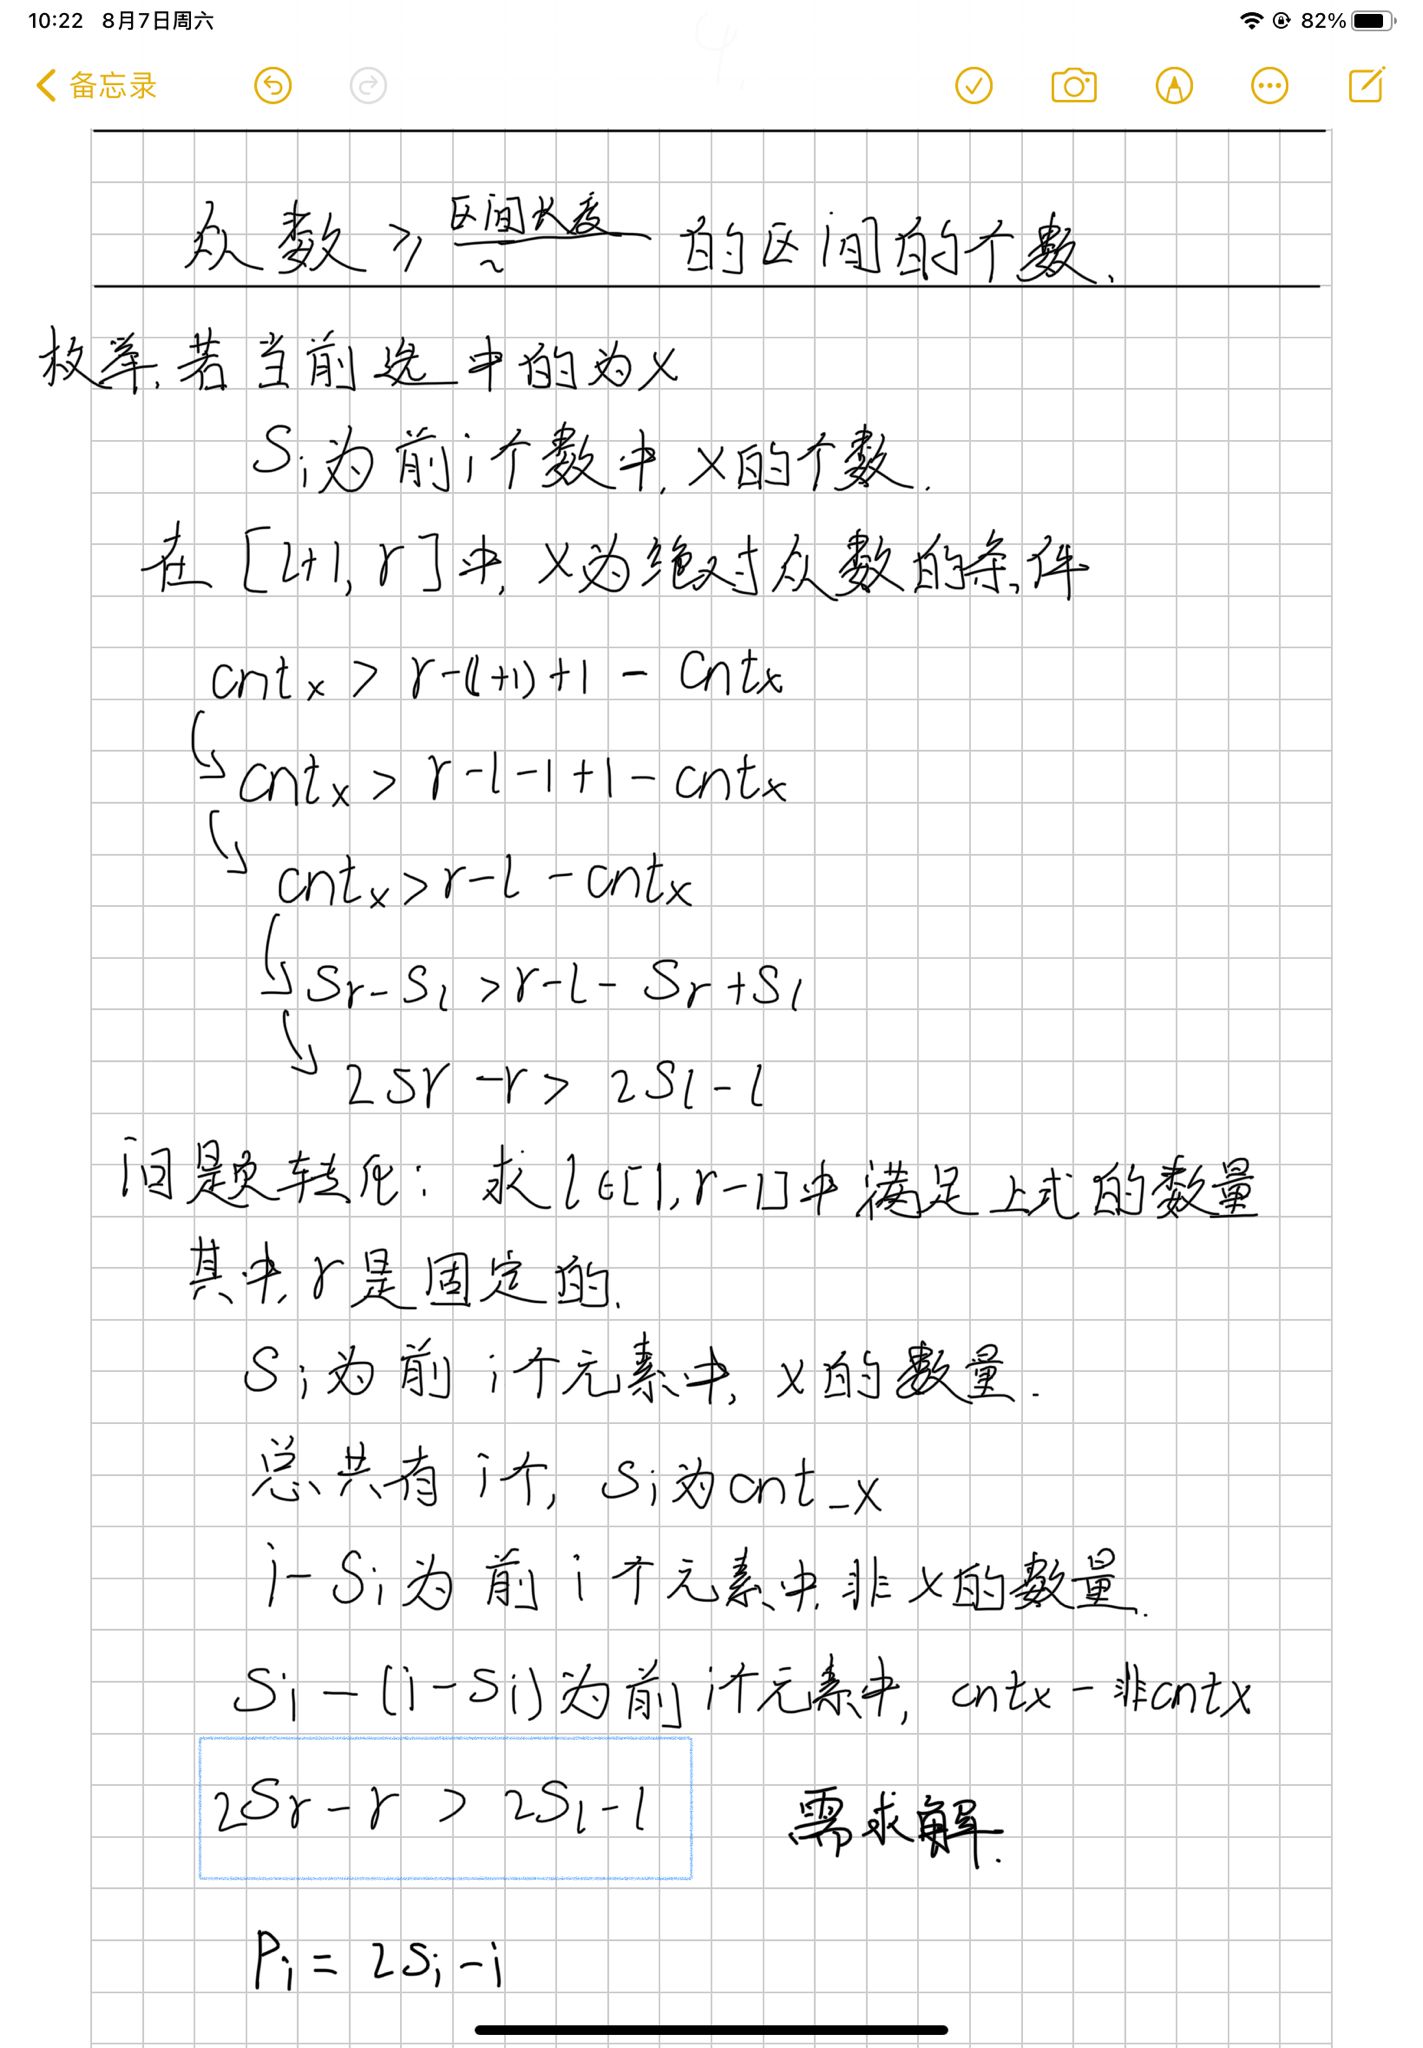 10:22 8月7日周六 82%
备忘录
众数 ≥ 区间长度/2 的区间的个数.
枚举,若当前选中的为x
Si为前i个数中,x的个数.
在[l+1, r]中,x为绝对众数的条件
cntx > r-(l+1)+1 - cntx
cntx > r-l-1+1-cntx
cntx > r-l-cntx
Sr-Sl > r-l-Sr+Sl
2Sr-r > 2Sl-l
问题转化: 求l∈[1,r-1]中满足上式的数量
其中,r是固定的.
Si为前i个元素中,x的数量.
总共有i个, Si为cnt_x
i-Si为前i个元素中,非x的数量.
Si-(i-Si)为前i个元素中, cntx-非cntx
2Sr-r > 2Sl-l 需求解.
Pi = 2Si-i